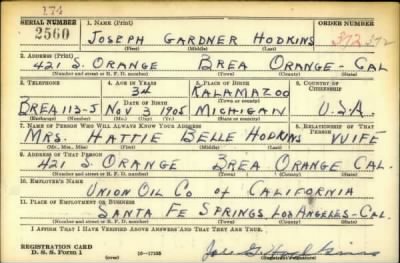 174
SERIAL NUMBER 1. NAME (Print) ORDER NUMBER
2560 JOSEPH GARDNER HODKINS 372 372
(First) (Middle) (Last)
2. ADDRESS (Print)
421 S. ORANGE BREA ORANGE - CAL
(Number and street or R. F. D. number) (Town) (County) (State)
3. TELEPHONE 4. AGE IN YEARS 5. PLACE OF BIRTH 6. COUNTRY OF CITIZENSHIP
34 KALAMAZOO
DATE OF BIRTH (Town or county)
BREA 113-J NOV 3 1905 MICHIGAN U.S.A.
(Exchange) (Number) (Mo.) (Day) (Yr.) (State or country)
7. NAME OF PERSON WHO WILL ALWAYS KNOW YOUR ADDRESS 8. RELATIONSHIP OF THAT PERSON
MRS. HATTIE BELLE HODKINS WIFE
(Mr., Mrs., Miss) (First) (Middle) (Last)
9. ADDRESS OF THAT PERSON
421 S ORANGE BREA ORANGE CAL.
(Number and street or R. F. D. number) (Town) (County) (State)
10. EMPLOYER'S NAME
UNION OIL CO of CALIFORNIA
11. PLACE OF EMPLOYMENT OR BUSINESS
SANTA FE SPRINGS LOS ANGELES - CAL.
(Number and street or R. F. D. number) (Town) (County) (State)
I AFFIRM THAT I HAVE VERIFIED ABOVE ANSWERS AND THAT THEY ARE TRUE.
REGISTRATION CARD
D. S. S. Form 1 (over) (Registrant's signature)